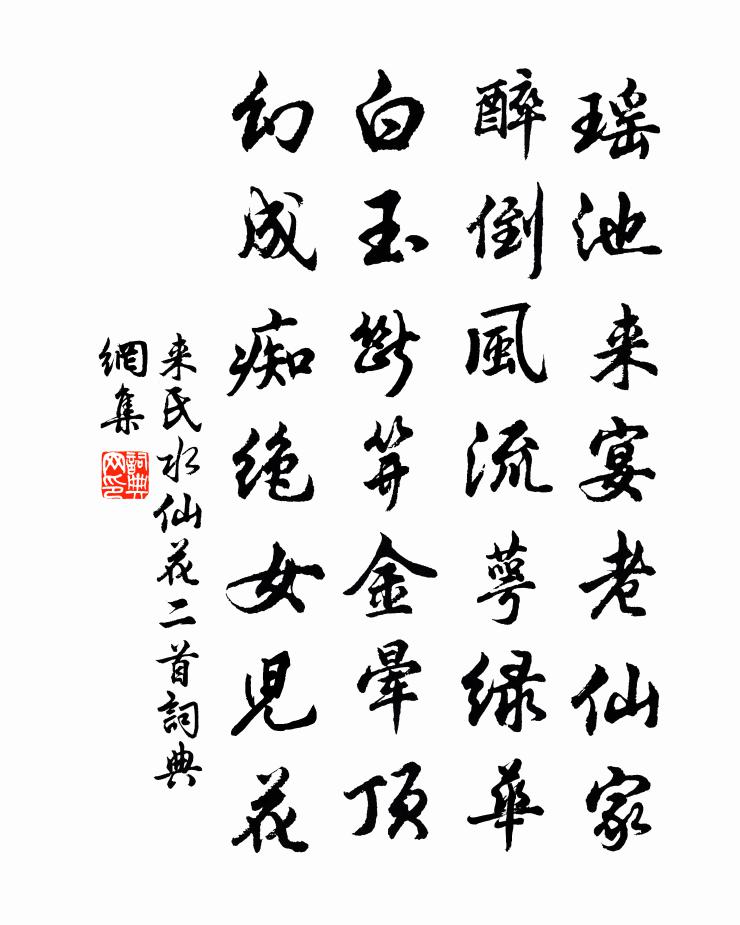 瑶池来宴老仙家
醉倒風流萼緑華
白玉斷笄金暈頂
幻成痴絶女児花
来氏水仙花二首詞典
網集
詞典
网印